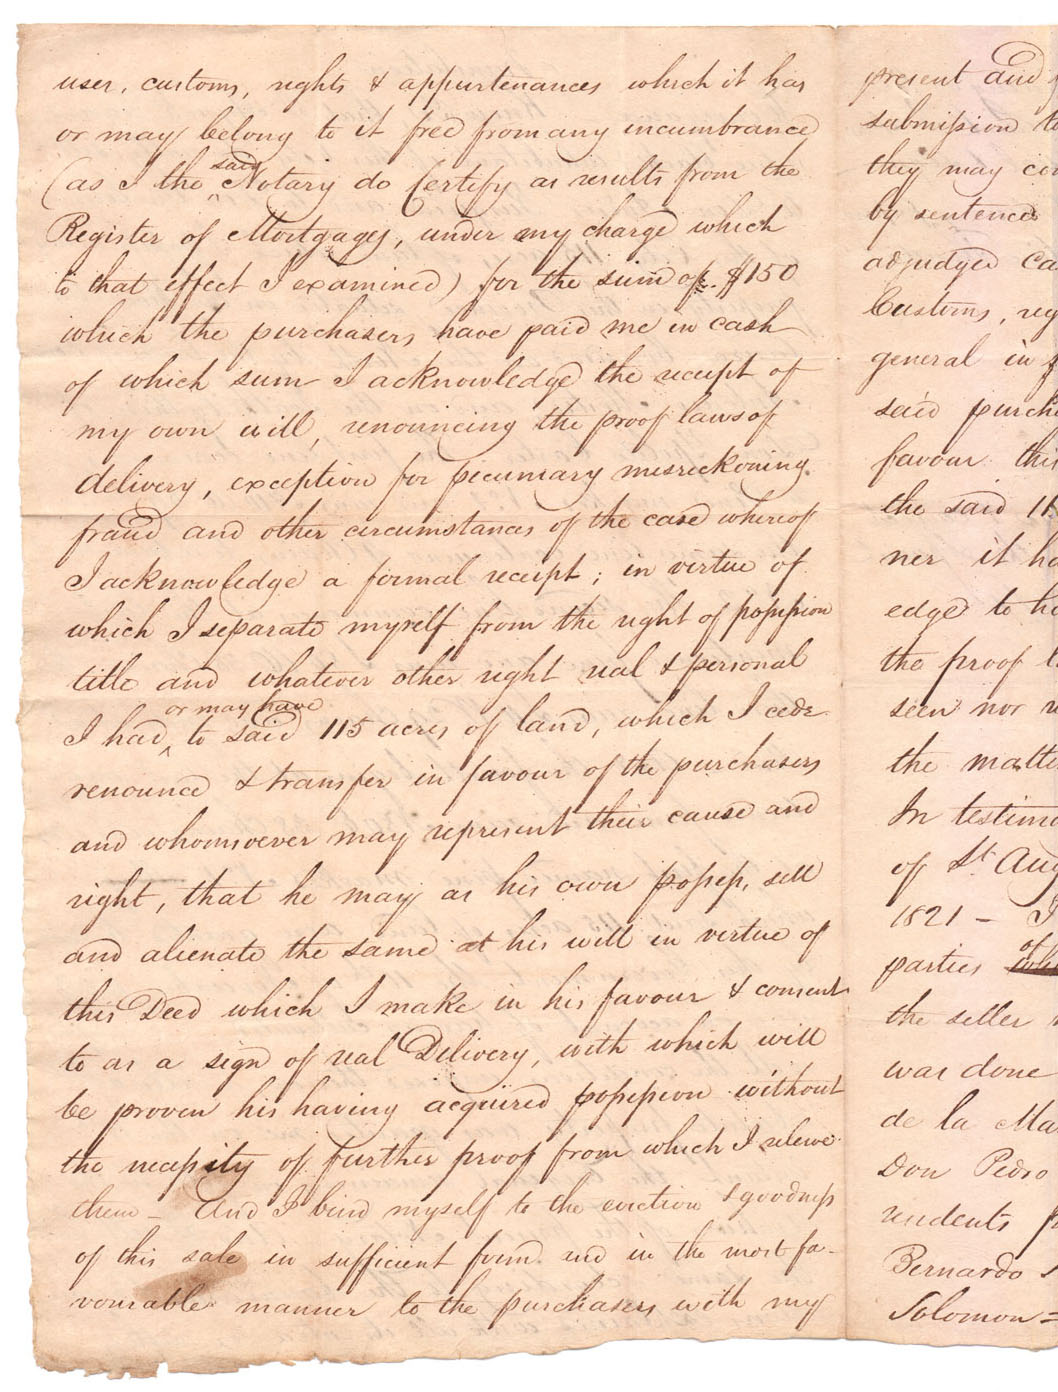 uses, customs, rights & appurtenances which it has
or may belong to it free from any incumbrance
(as I the said Notary do Certify as results from the
Register of Mortgages, under my charge which
to that effect I examined) for the sum of $150
which the purchasers have paid me in cash
of which sum I acknowledge the receipt of
my own will, renouncing the proof laws of
delivery, exception for pecuniary misreckoning
fraud and other circumstances of the case whereof
I acknowledge a formal receipt; in virtue of
which I separate myself from the right of possession
title and whatever other right real & personal
I had or may have to said 115 acres of land, which I cede
renounce & transfer in favour of the purchasers
and whomsoever may represent their cause and
right, that he may as his own possess, sell
and alienate the same at his will in virtue of
this Deed which I make in his favour & consent
to as a sign of real Delivery, with which will
be proven his having acquired possession without
the necessity of further proof from which I relieve
them - And I bind myself to the eviction & goodness
of this sale in sufficient form and in the most fa-
vourable manner to the purchasers with my
present and
submission to
they may
by sentence
adjudged
Customs,
general in
said
favour this
the said
ner it
edge to
the proof
seen nor
the
In
of St.
1821 - I
parties of
the seller
was done
de la
Don Pedro
residents
Bernardo
Solomon =